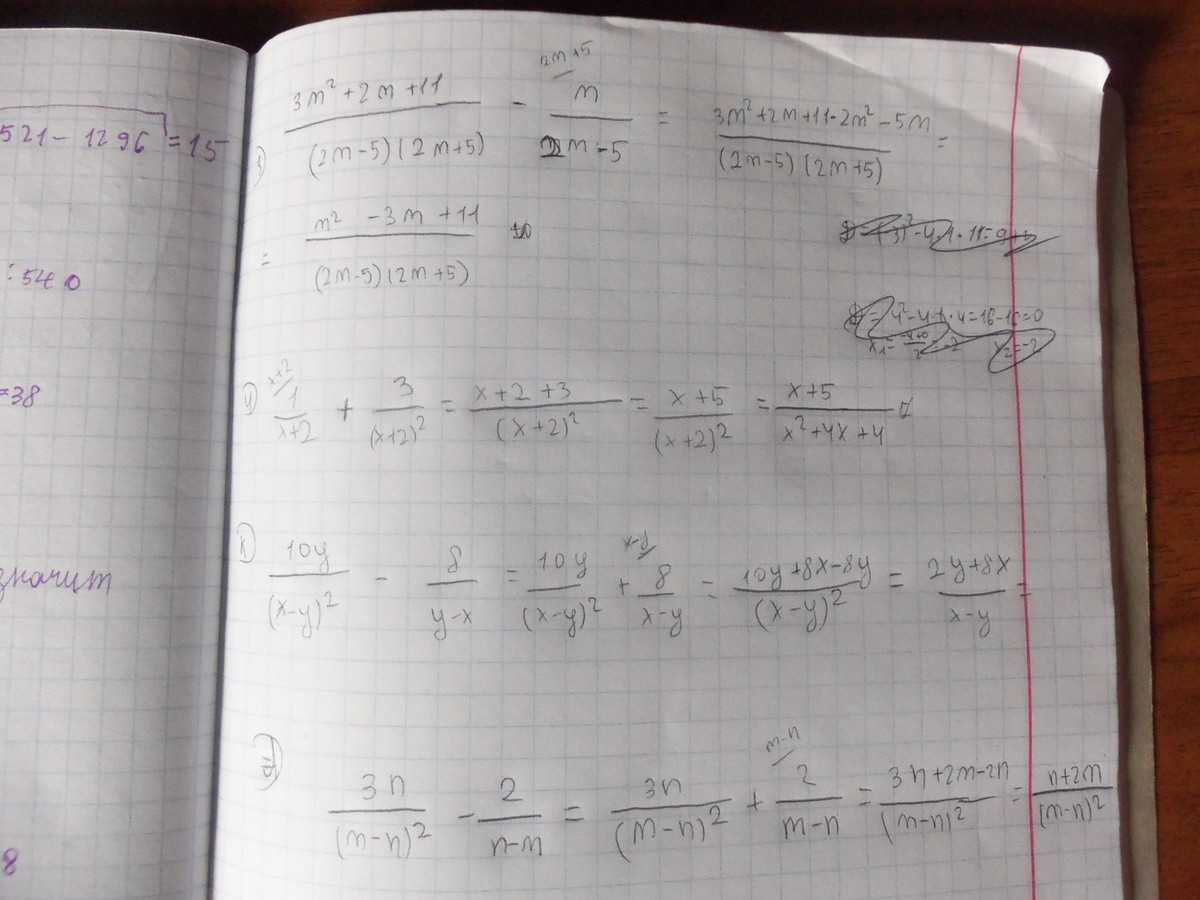 521 - 1296 = 15
: 540
=38
значит
8
2m+5
(3m² + 2m + 11)/((2m-5)(2m+5)) - m/(2m-5) = (3m²+2m+11-2m²-5m)/((2m-5)(2m+5)) =
= (m² - 3m + 11)/((2m-5)(2m+5))
x+2
1/(x+2) + 3/(x+2)² = (x+2+3)/(x+2)² = (x+5)/(x+2)² = (x+5)/(x²+4x+4)
x-y
к) 10y/(x-y)² - 8/(y-x) = 10y/(x-y)² + 8/(x-y) = (10y+8x-8y)/(x-y)² = (2y+8x)/(x-y) =
m-n
3n/(m-n)² - 2/(n-m) = 3n/(m-n)² + 2/(m-n) = (3n+2m-2n)/(m-n)² = (n+2m)/(m-n)²